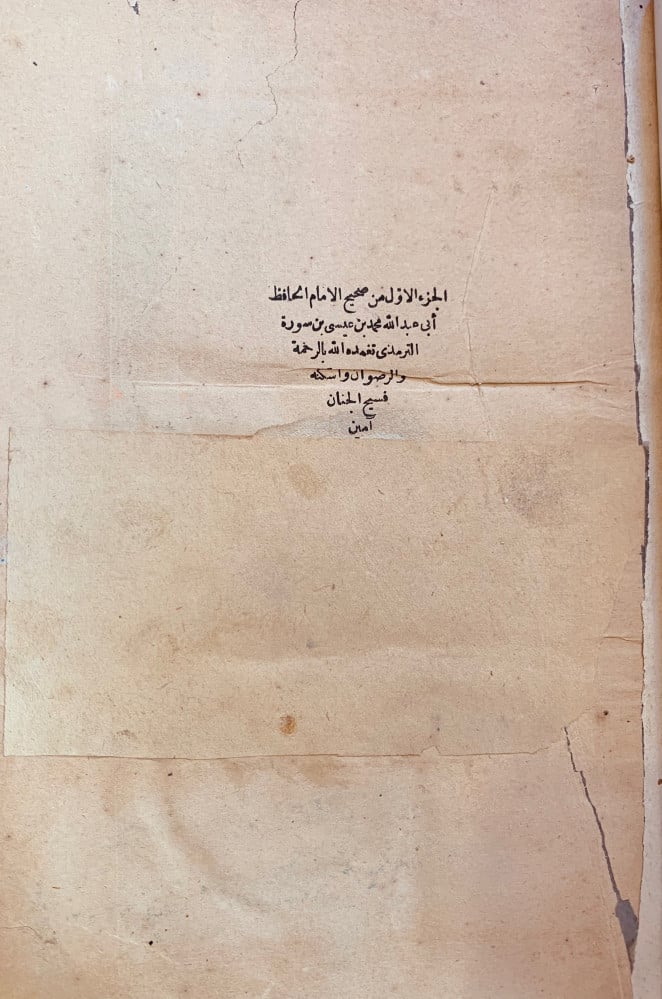 الجزء الاوّل من صحيح الامام الحافظ
أبي عبد الله محمد بن عيسى بن سورة
الترمذى تغمده الله بالرحمة
والرضوان واسكنه
فسيح الجنان
آمين